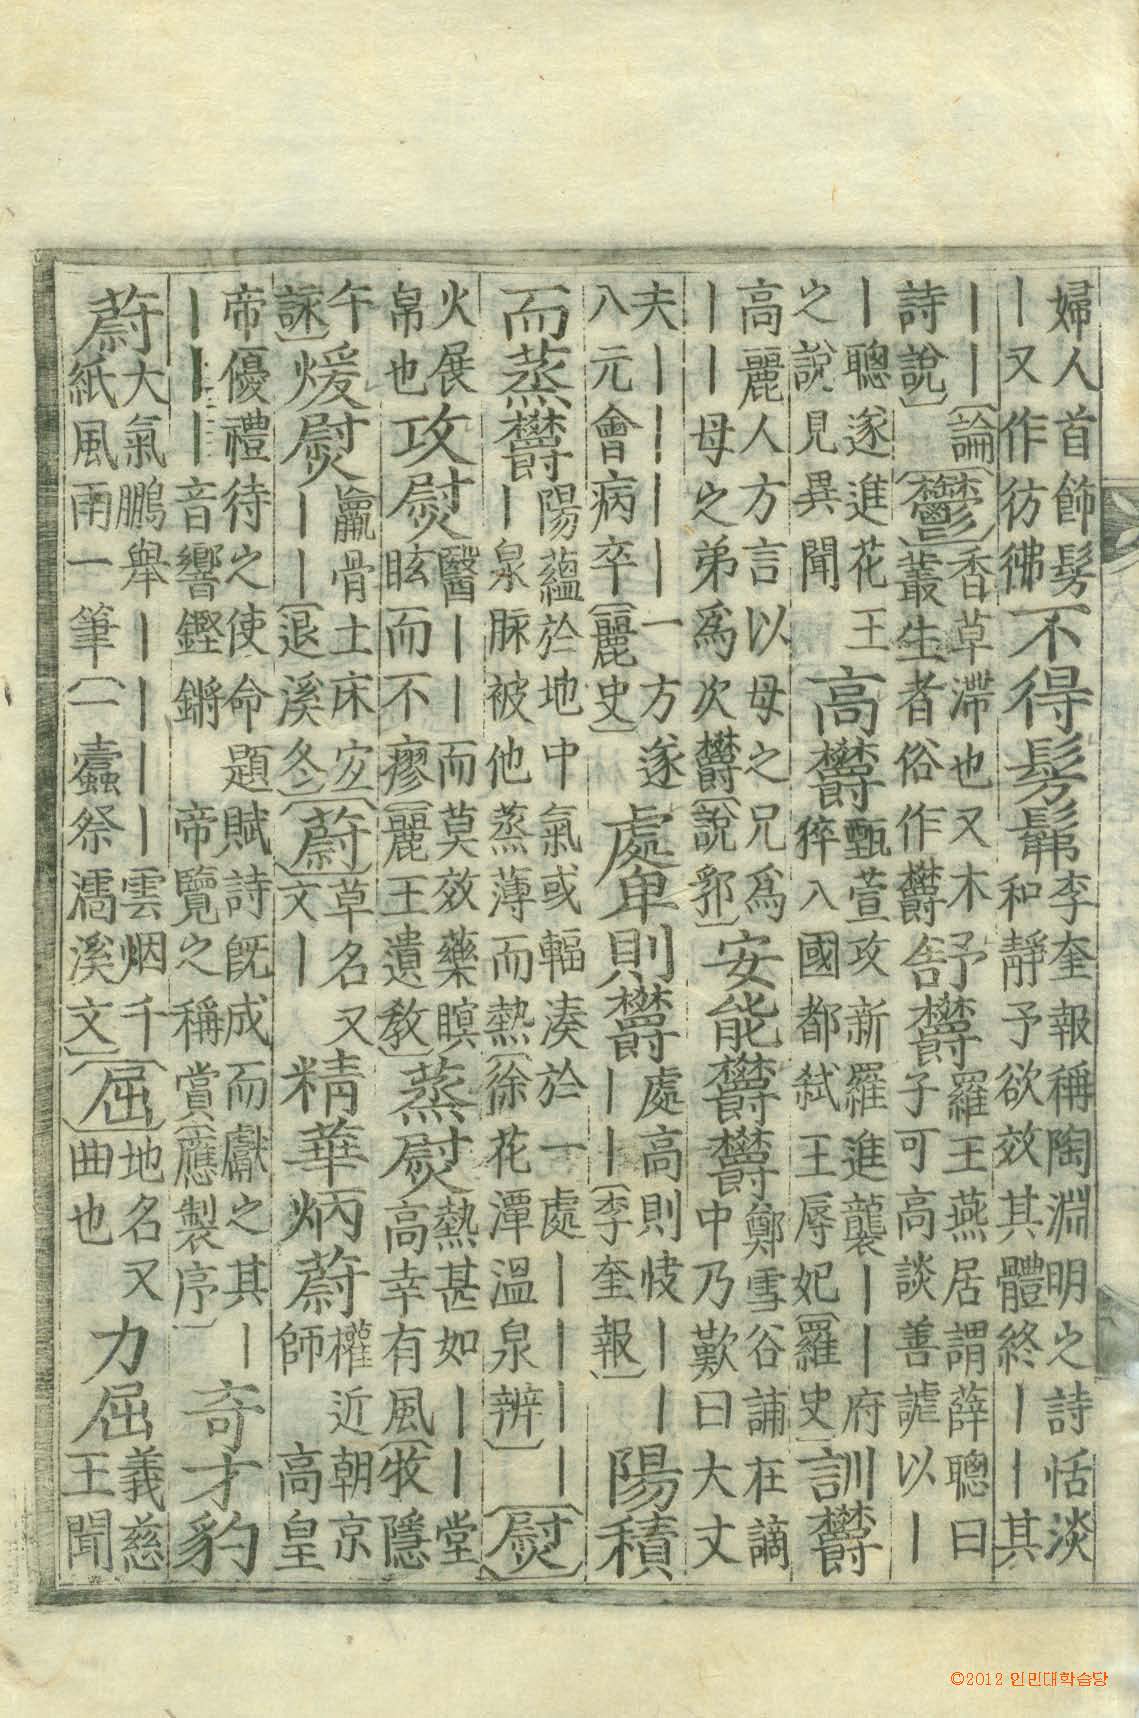 婦人首飾髣
｜又作彷彿
不得髣髴
李奎報稱陶淵明之詩恬淡
和靜予欲效其體終｜｜其
｜｜〔論
詩說〕
〔欝〕
香草滯也又木
叢生者俗作欝
舒欝
羅王燕居謂薛聰曰
子可高談善謔以｜
｜聰遂進花王
之說見異聞
高欝
甄萱攻新羅進襲｜｜府
猝入國都弑王辱妃〔羅史〕
訓欝
高麗人方言以母之兄爲
｜｜母之弟爲次欝〔說郛〕
安能欝欝
鄭雪谷誧在謫
中乃歎曰大丈
夫｜｜｜｜一方遂
八元會病卒〔麗史〕
處卑則欝
處高則忮｜｜
｜｜〔李奎報〕
陽積
而蒸欝
陽蘊於地中氣或輻湊於一處｜｜｜｜
｜泉脉被他蒸薄而熱〔徐花潭溫泉辨〕
〔熨〕
火展
帛也
攻熨
醫｜｜而莫效藥瞑
眩而不瘳〔麗王遺敎〕
蒸熨
熱甚如｜｜堂
高幸有風〔牧隱
午
詠〕
煖熨
羸骨土床宐
｜｜〔退溪冬〕
〔蔚〕
草名又
文｜
精華炳蔚
權近朝京
師高皇
帝優禮待之使命題賦詩旣成而獻之其｜
｜｜｜音響鏗鏘帝覽之稱賞〔應製序〕
奇才豹
蔚
大氣鵬舉｜｜｜｜雲烟千
紙風雨一筆〔一蠹祭濡溪文〕
〔屈〕
地名又
曲也
力屈
義慈
王聞
©2012 인민대학습당